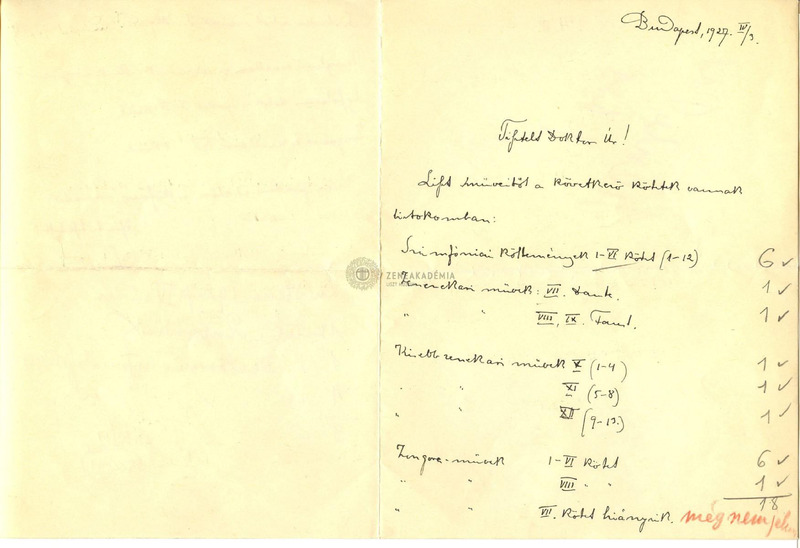 Budapest, 1927. IV/3.
Tisztelt Doktor Úr!
Liszt műveiből a következő kötetek vannak
birtokomban:
Szimfóniai költemények I-VI kötet (1-12) 6 ✓
Zenekari művek: VII. Dante. 1 ✓
" " VIII, IX. Faust. 1 ✓
Kisebb zenekari művek X (1-4) 1 ✓
" " XI (5-8) 1 ✓
" " XII (9-13.) 1 ✓
Zongora-művek I-VI kötet 6 ✓
" " VIII " " 1 ✓
18
" " VII. kötet hiányzik. még nem jelen
ZENEAKADÉMIA